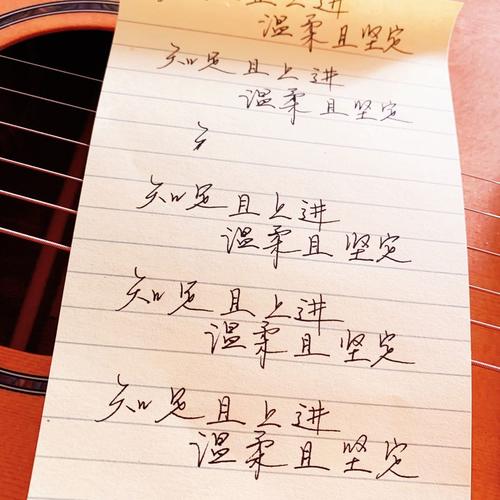 且上进
温柔且坚定
知足且上进
温柔且坚定
知足且上进
温柔且坚定
知足且上进
温柔且坚定
知足且上进
温柔且坚定